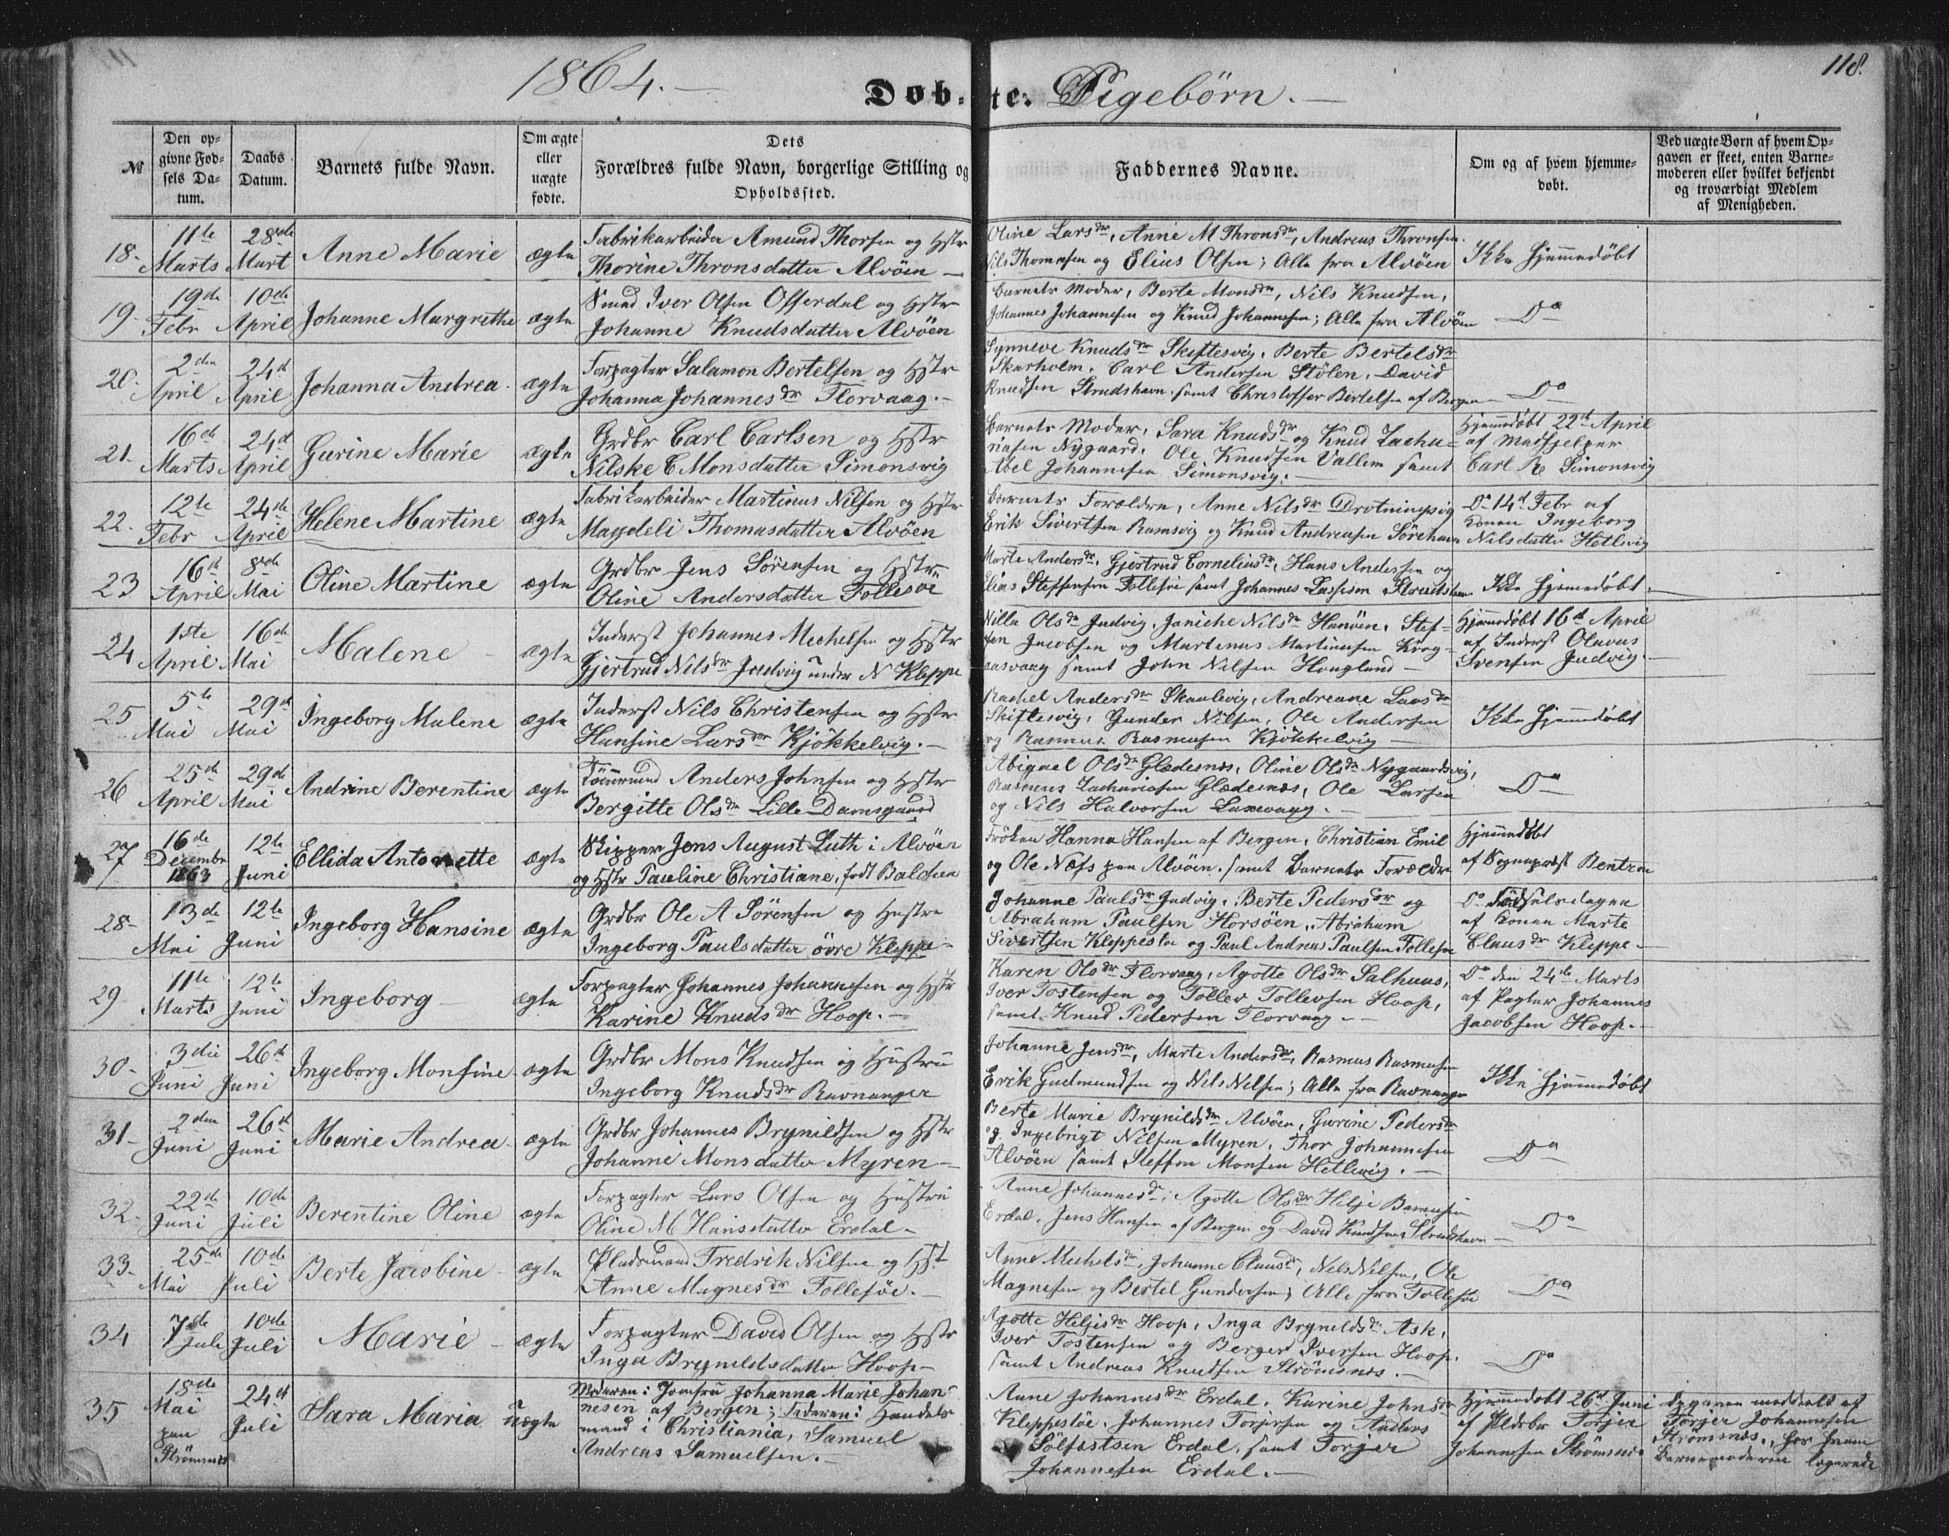 1864.
Døbte. Pigebørn.
118.
№
Den opgivne Fødsels Datum.
Daabs Datum.
Barnets fulde Navn.
Om ægte eller uægte fødte.
Dets Forældres fulde Navn, borgerlige Stilling og Opholdssted.
Faddernes Navne.
Om og af hvem hjemmedøbt.
Ved uægte Børn af hvem Opgaven er skeet, enten Barnemoderen eller hvilket bekjendt og troværdigt Medlem af Menigheden.
18. 11te Marts 28de Mart Anne Marie ægte
Fabrikarbeider Amund Thorsen og Hstr
Thorine Thronsdatter Alvøen
Oline Larsdr, Anne M Thronsdr, Andreas Thronsen
Nils Thomesen og Elius Olsen; Alle fra Alvøen
Ikke Hjemmedøbt
19. 19de Febr 10de April Johanne Margrethe ægte
Smed Iver Olsen Offerdal og Hstr
Johanne Knudsdatter Alvøen
Barnets Moder, Berte Monsdr, Nils Knudsen,
Johannes Johannesen og Knud Johannesen; Alle fra Alvøen
Do
20. 2den April 24d April Johanna Andrea ægte
Forpagter Salamon Bertelsen og Hstr
Johanna Johannesdr Florvaag.
Synneve Knudsdr Skiftesvig, Berte Bertelsdr
Skarholm, Carl Andersen Stølen, David
Knudsen Strudshavn samt Christoffer Bertelsen af Bergen
Do
21. 16de Marts 24d April Gurine Marie ægte
Grdbr Carl Carlsen og Hstr
Nilske C Monsdatter Simonsvig
Barnets Moder, Sara Knudsdr og Knud Zacha-
riasen Nygaard, Ole Knudsen Vallem samt
Abel Johannesen Simonsvig.
Hjemmedøbt 22de April
af Medhjelper
Carl R Simonsvig
22. 12te Febr 24de April Helene Martine ægte
Fabrikarbeider Martinus Nilsen og Hstr
Magdeli Thomasdatter Alvøen
Barnets Forældre, Anne Nilsdr Drotningsvig
Erik Sivertsen Ramsvig og Knud Andreasen Sørehavn
Do 14d Febr af
Konen Ingeborg
Nilsdatter Hetlevig
23 16d April 8de Mai Oline Martine ægte
Grdbr Jens Sørensen og Hstr
Oline Andersdatter Follesøe
Marte Andersdr, Gjertrud Corneliusdr, Hans Andersen og
Elias Steffensen Follesøe samt Johannes Strudshavn
Ikke Hjemmedøbt
24 1ste April 16de Mai Malene ægte
Inderst Johannes Mechelsen og Hstr
Gjertrud Nilsdr Judvig under N Kleppe
Nille Olsdr Judvig, Janiche Nilsdr Hanøen, Stef-
fen Jacobsen og Martenus Martinusen Krag-
aasvaag samt John Nilsen Hougland
Hjemmedøbt 16d April
af Inderst Olavus
Svensen Judvig.
25 5te Mai 29de Mai Ingeborg Malene ægte
Inderst Nils Christensen og Hstr
Hansine Larsdr Kjøkkelvig.
Rachel Andersdr Skaalevig, Andreane Larsdr
Skiftesvig, Gunder Nilsen, Ole Andersen
og Rasmus Rasmusen Kjøkkelvig
Ikke Hjemmedøbt
26 25de April 29de Mai Andrine Berentine ægte
Tømmermand Anders Johnsen og Hstr
Bergitte Olsdr Lille Damsgaard
Abigael Olsdr Glædesnæs, Oline Olsdr Nygaardsvig,
Rasmus Zachariasen Glædesnæs, Ole Larsen
og Nils Halvorsen Laxevaag.
Do
27 16de Decembr 1863 12te Juni Ellida Antonette ægte
Skipper Jens August Luth i Alvøen
og Hstr Pauline Christiane, født Balchen
Frøken Hanna Hansen af Bergen, Christian Emil
og Ole Næss paa Alvøen, samt Barnets Forældre
Hjemmedøbt
af Sognepræst Bentzen
28 13de Mai 12te Juni Ingeborg Hansine ægte
Grdbr Ole A Sørensen og Hustru
Ingeborg Paulsdatter øvre Kleppe
Johanne Paulsdr Judvig, Berte Pedersdr og
Abraham Paulsen Horsøen, Abraham
Sivertsen Kleppestø og Paul Andreas Paulsen Follesøe
Do Fødselsdagen
af Konen Marte
Clausdr Kleppe
29 11te Marts 12te Juni Ingeborg ægte
Forpagter Johannes Johannesen og Hstr
Karine Knudsdr Hoop.
Karen Olsdr Florvaag, Agotte Olsdr Salhuus,
Iver Tostensen og Tollev Tollevsen Hoop,
samt Knud Pedersen Florvaag
Do den 24de Marts
af Pagter Johannes
Jacobsen Hoop.
30 3die Juni 26d Juni Ingeborg Monsine ægte
Grdbr Mons Knudsen og Hustru
Ingeborg Knudsdr Ravnanger
Johanne Jensdr, Marte Andersdr, Rasmus Rasmusen
Erik Gudmundsen og Nils Nilsen; Alle fra Ravnanger
Ikke Hjemmedøbt
31 2den Juni 26d Juni Marie Andrea ægte
Grdbr Johannes Brynildsen og Hstr
Johanne Monsdatter Myren
Berte Marie Brynildsdr Alvøen, Gurine Pedersdr
og Ingebrigt Nilsen Myren, Thor Johannesen
Alvøen samt Steffen Monsen Hetlevig.
Do
32 22de Juni 10de Juli Berentine Oline ægte
Forpagter Lars Olsen og Hustru
Oline M Hansdatter Erdal
Anne Johannesdr, Agotte Olsdr, Helje
Erdal, Jens Hansen af Bergen og David Knudsen Strudshavn
Do
33 25de Mai 10de Juli Berte Jacobine ægte
Pladsmand Fredrik Nilsen og Hst
Anne Magnesdr Follesøe.
Anne Mechelsdr, Johanne Clausdr, Nils Nilsen, Ole
Magnesen og Bertel Gundersen; Alle fra Follesøe
Do
34 7de Juli 10de Juli Marie ægte
Forpagter David Olsen og Hstr
Inga Brynildsdatter Hoop
Agotte Heljesdr Hoop, Inga Bryneldsdr Ask,
Iver Tostensen og Berger Iversen Hoop,
samt Andreas Knudsen Strømsnes.
Do
35 18de Mai paa Strømsnes 24d Juli Sara Maria uægte
Moderen: Jomfru Johanna Marie Johan-
nesen af Bergen; Faderen: Handels
mand i Christiania, Samuel
Andreas Samuelsen.
Anne Johannesdr Erdal, Karine Johnsdr
Kleppestøe, Johannes Torjersen og Anders
Sølfæstsen Erdal, samt Torjer
Johannesen Erdal.
Hjemmedøbt 26d Juni
af Pldsbr Torjer
Johannesen Strømsnes
Opgaven meddeelt af
Torjer Johannesen
Strømsnes, hos hvem
Barnemoderen logerede